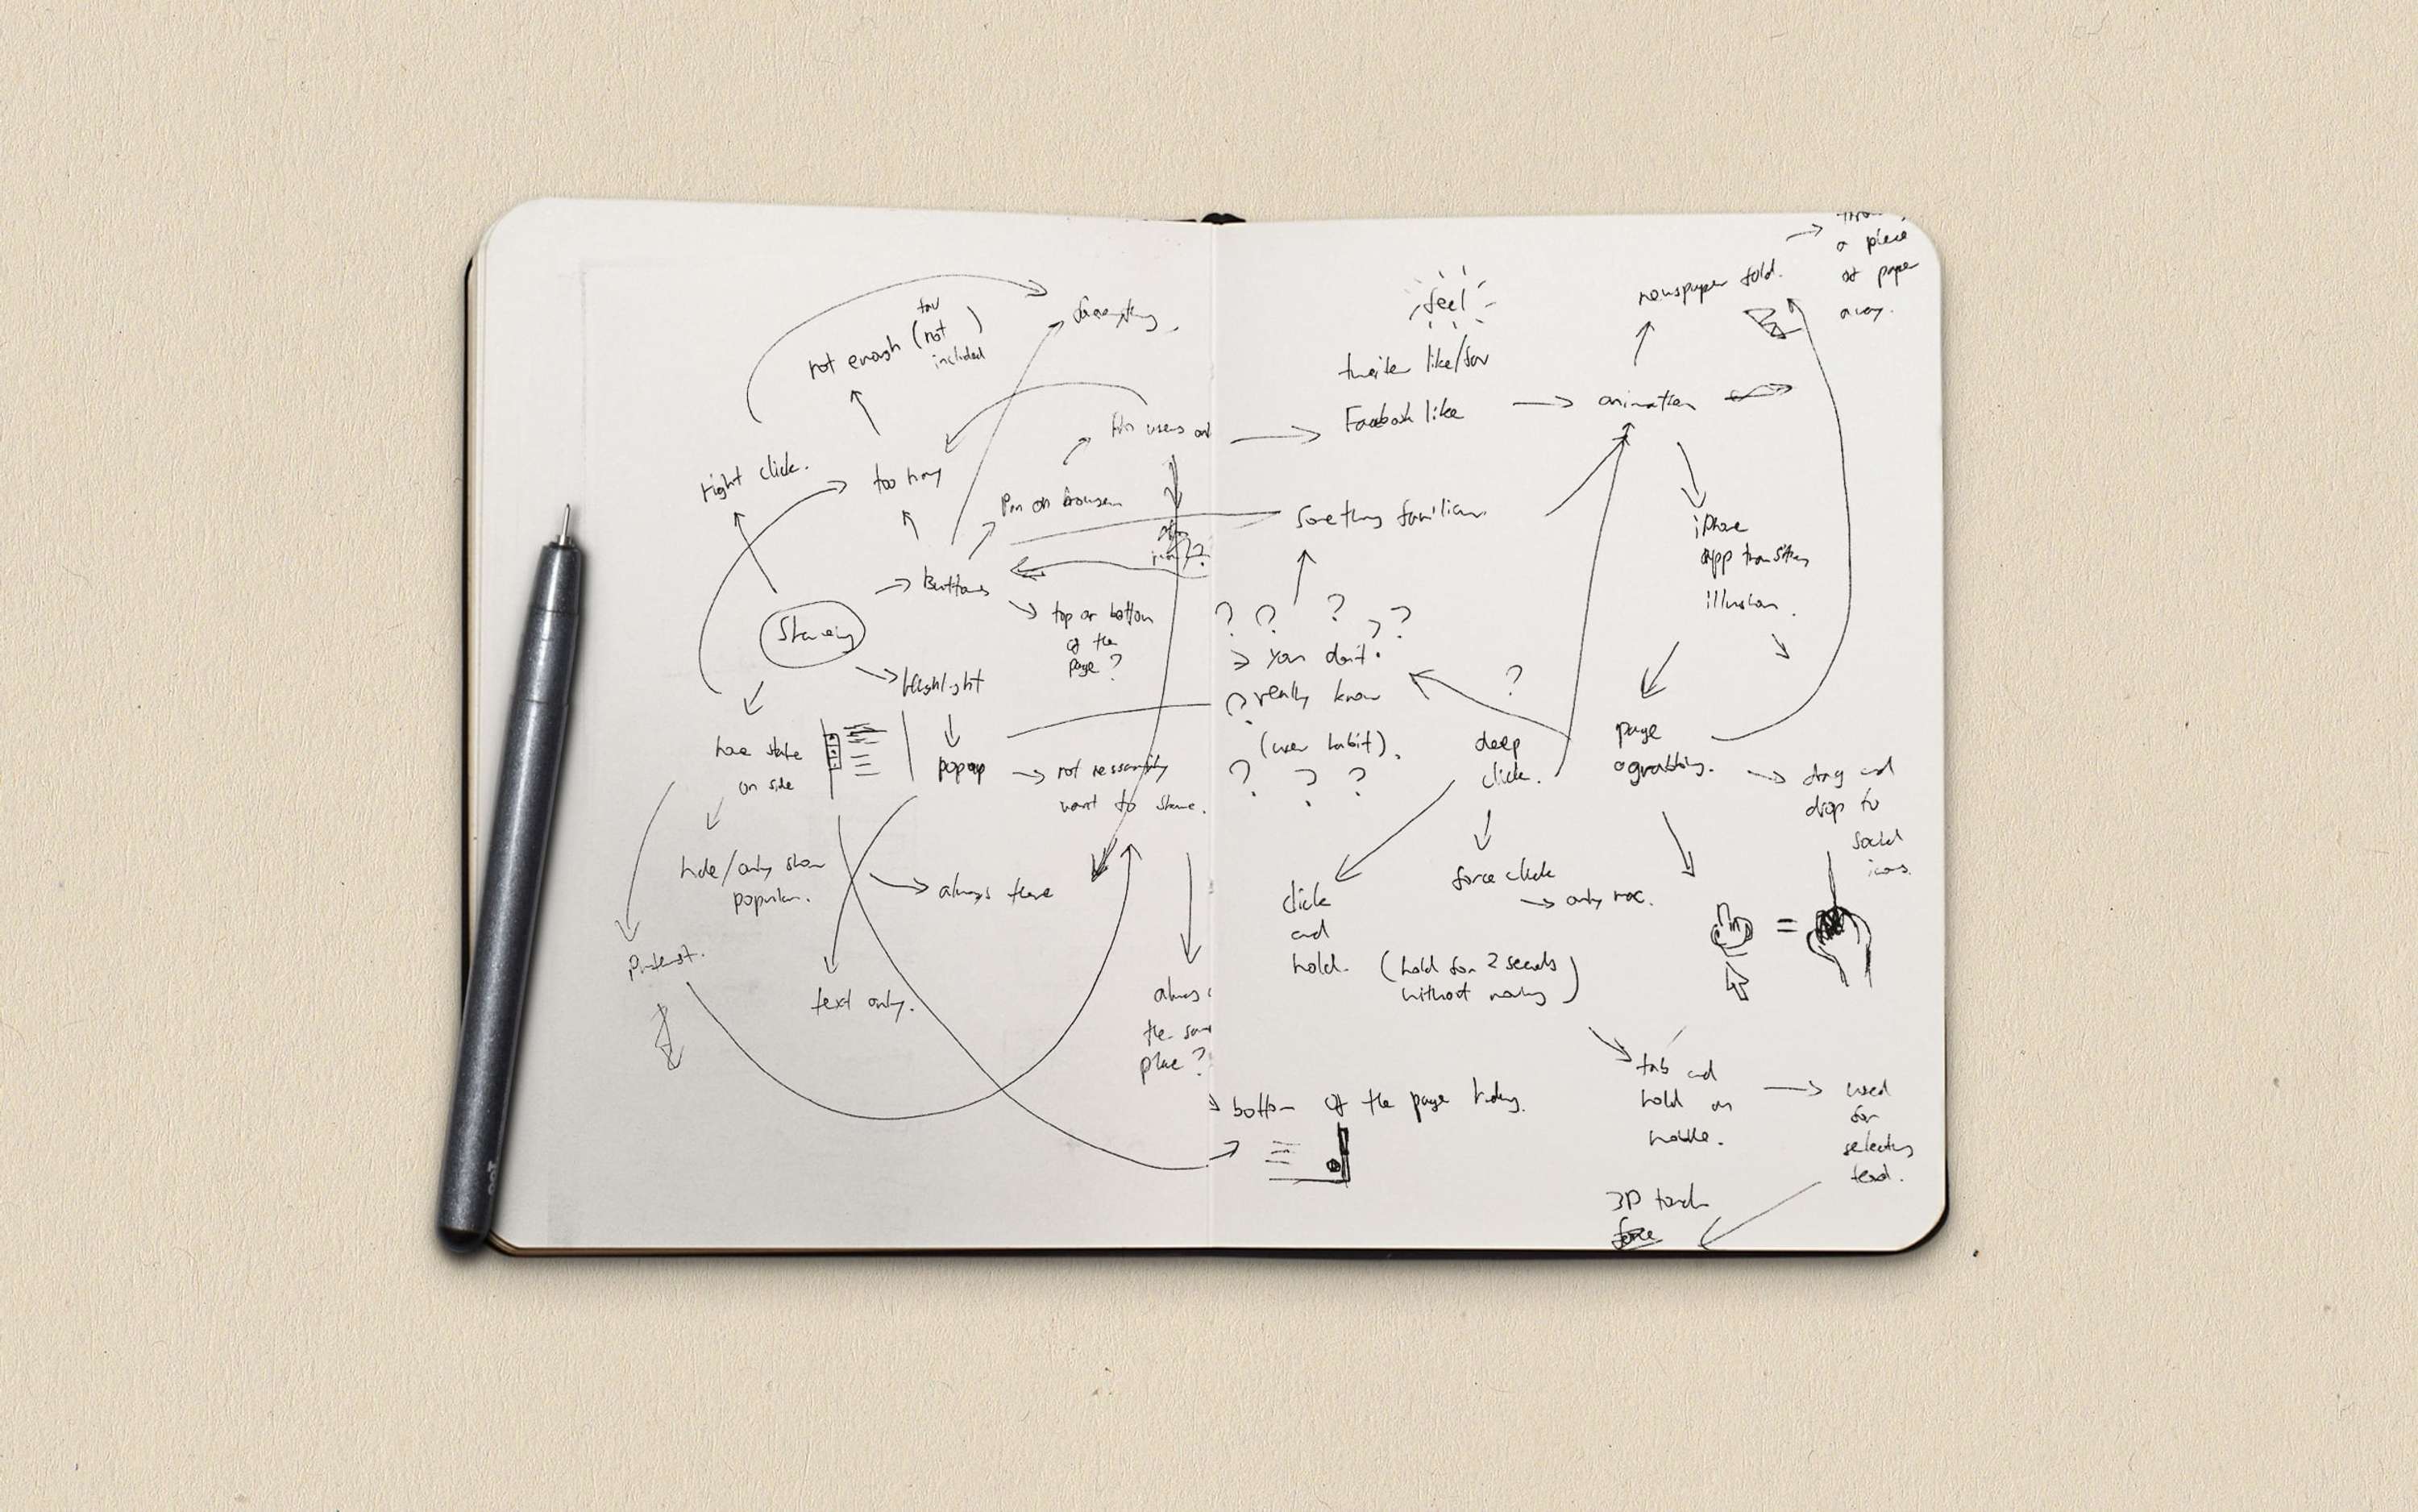 fav
not enough (not )
included
right click.
too many
Pin on browser
Buttons
top or bottom
of the
page ?
Sharing
highlight
popup
on side
not necessarily
want to share.
hide/only show
popular.
always there
Pinterest.
text only.
always
the same
place ?
feel
twitter like/fav
Facebook like
animation
newspaper fold.
a piece
of paper
away.
something familiar.
iPhone
app transition
illusion.
? ? ? ? ?
you don't
? really know
(user habit).
? ? ?
?
deep
click.
page
grabbing.
drag and
drop to
social
icons.
force click
only mac.
click
and
hold. (hold for 2 seconds
without moving)
=
tab and
hold on
mobile.
used
for
selecting
text.
bottom of the page hiding.
3D touch
force